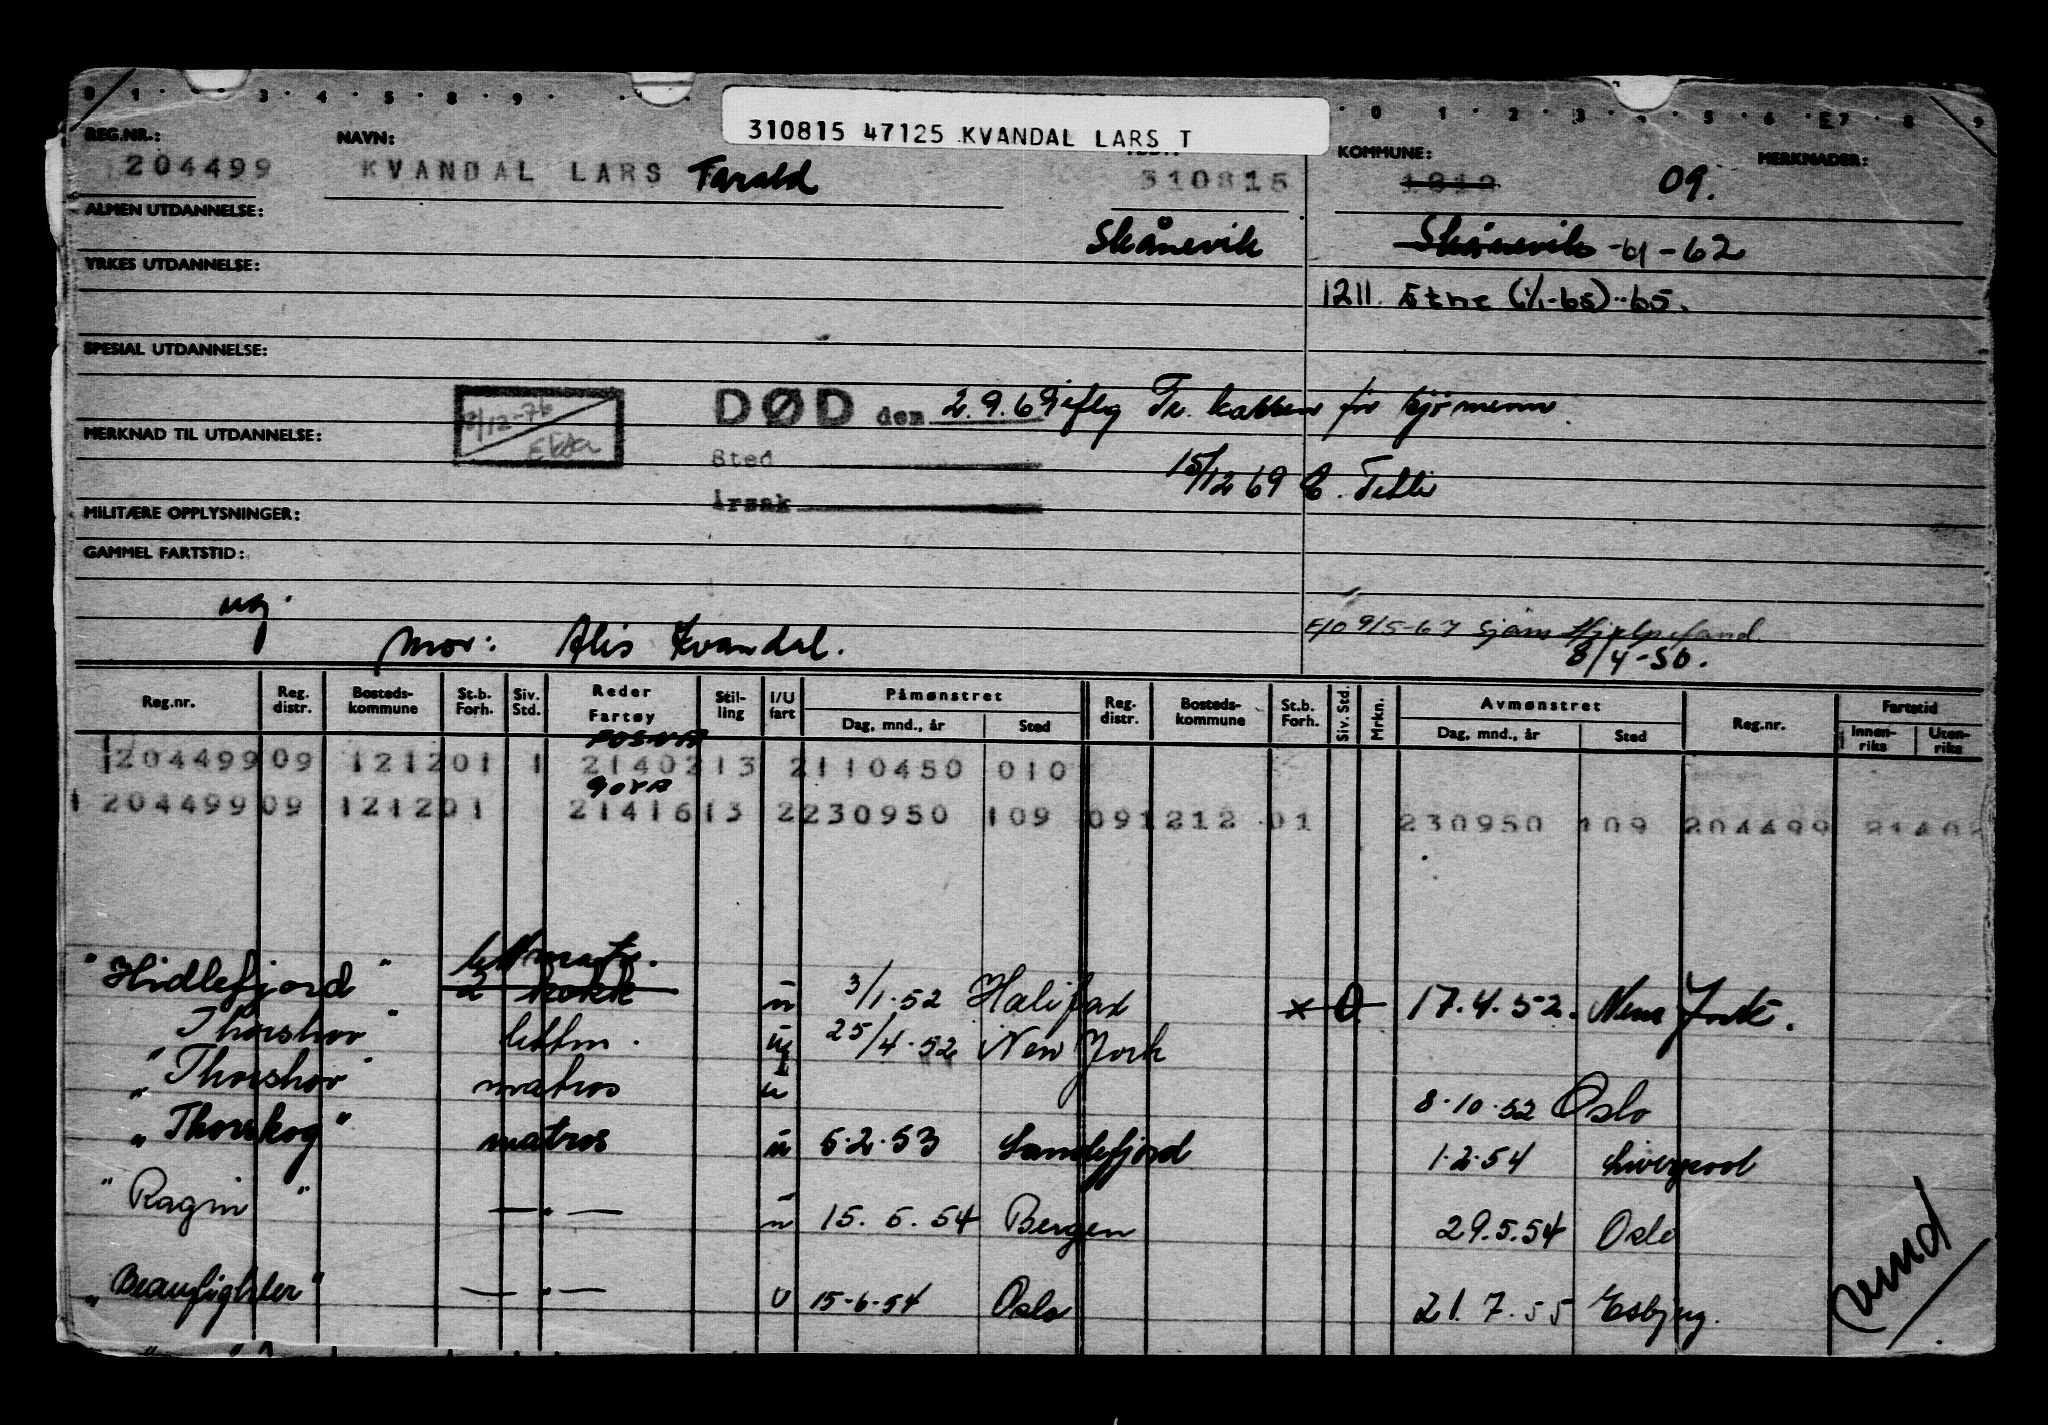 310815 47125 KVANDAL LARS T
REG.NR.: NAVN: KOMMUNE: MERKNADER:
204499 KVANDAL LARS Tarald 310815 1212 09.
ALMEN UTDANNELSE: Skånevik Skånevik -61-62
YRKES UTDANNELSE:
1211. Etne (1/1-65)-65.
SPESIAL UTDANNELSE:
DØD den 2.9.69 iflg Tr. for sjømenn
MERKNAD TIL UTDANNELSE:
Sted
15/12 69
Årsak
MILITÆRE OPPLYSNINGER:
GAMMEL FARTSTID:
ugj.
Mor: Alis Kvandal.
9/5-67 Sjøm Hjelpefond
8/4-50.
Reg.nr. Reg. distr. Bosteds- kommune St.b. Forh. Siv. Std. Reder Fartøy Stil- ling I/U fart Påmønstret Dag, mnd., år Sted Reg. distr. Bosteds- kommune St.b. Forh. Siv. Std. Mrkn. Avmønstret Dag, mnd., år Sted Reg.nr. Fartstid Innen- riks Uten- riks
POSNA
204499 09 1212 01 1 21402 13 2 110450 010
GOYA
1 204499 09 1212 01 21416 13 2 230950 109 09 1212 01 230950 109 204499 21402
lettmatr.
"Hidlefjord" 2 kokk u 3/1-52 Halifax x 0 17.4.52. New York.
"Thorshov" lettm. u 25/4-52 New York
"Thorshov" matros u 8-10-52 Oslo
"Thorskog" matros u 5.2.53 Sandefjord 1.2.54 Liverpool
"Ragni" — . — u 15.5.54 Bergen 29.5.54 Oslo
"Beaufighter" — . — u 15-6-54 Oslo 21.7.55 Esbjerg.
vend